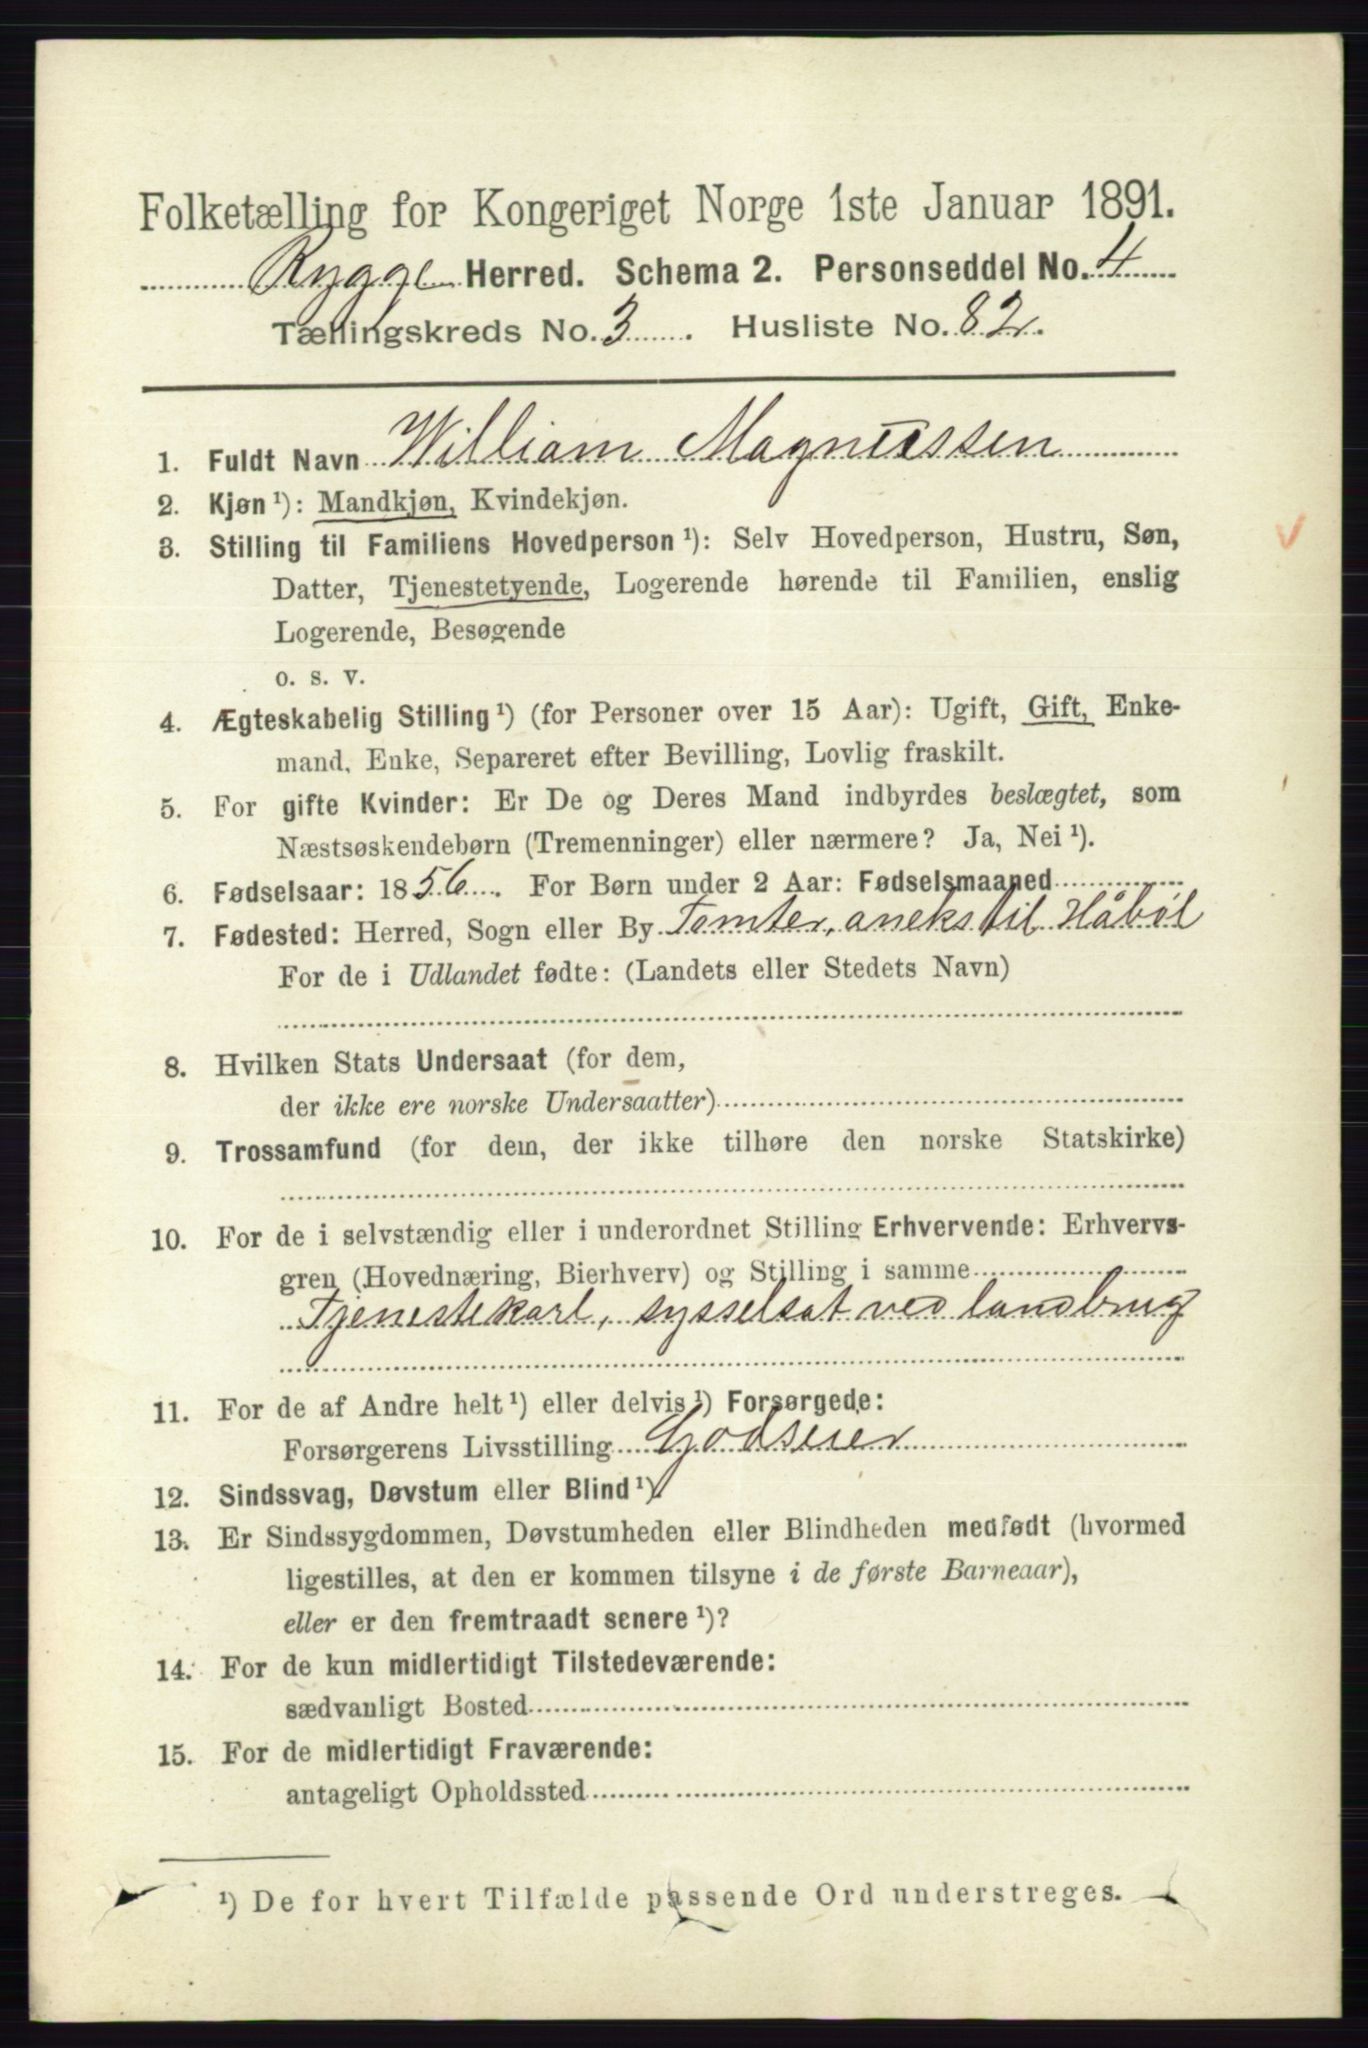 Folketælling for Kongeriget Norge 1ste Januar 1891.
Rygge Herred. Schema 2. Personseddel No. 4
Tællingskreds No. 3. Husliste No. 82.
1. Fuldt Navn William Magnussen
2. Kjøn ¹): Mandkjøn, Kvindekjøn.
3. Stilling til Familiens Hovedperson ¹): Selv Hovedperson, Hustru, Søn,
Datter, Tjenestetyende, Logerende hørende til Familien, enslig
Logerende, Besøgende
o. s. v.
4. Ægteskabelig Stilling ¹) (for Personer over 15 Aar): Ugift, Gift, Enke-
mand, Enke, Separeret efter Bevilling, Lovlig fraskilt.
5. For gifte Kvinder: Er De og Deres Mand indbyrdes beslægtet, som
Næstsøskendebørn (Tremenninger) eller nærmere? Ja, Nei ¹).
6. Fødselsaar: 1856. For Børn under 2 Aar: Fødselsmaaned
7. Fødested: Herred, Sogn eller By Tomter, aneks til Håbøl
For de i Udlandet fødte: (Landets eller Stedets Navn)
8. Hvilken Stats Undersaat (for dem,
der ikke ere norske Undersaatter)
9. Trossamfund (for dem, der ikke tilhøre den norske Statskirke)
10. For de i selvstændig eller i underordnet Stilling Erhvervende: Erhvervs-
gren (Hovednæring, Bierhverv) og Stilling i samme
Tjenestekarl, sysselsat ved landbrug
11. For de af Andre helt ¹) eller delvis ¹) Forsørgede:
Forsørgerens Livsstilling Godseier
12. Sindssvag, Døvstum eller Blind ¹).
13. Er Sindssygdommen, Døvstumheden eller Blindheden medfødt (hvormed
ligestilles, at den er kommen tilsyne i de første Barneaar),
eller er den fremtraadt senere ¹)?
14. For de kun midlertidigt Tilstedeværende:
sædvanligt Bosted
15. For de midlertidigt Fraværende:
antageligt Opholdssted
¹) De for hvert Tilfælde passende Ord understreges.